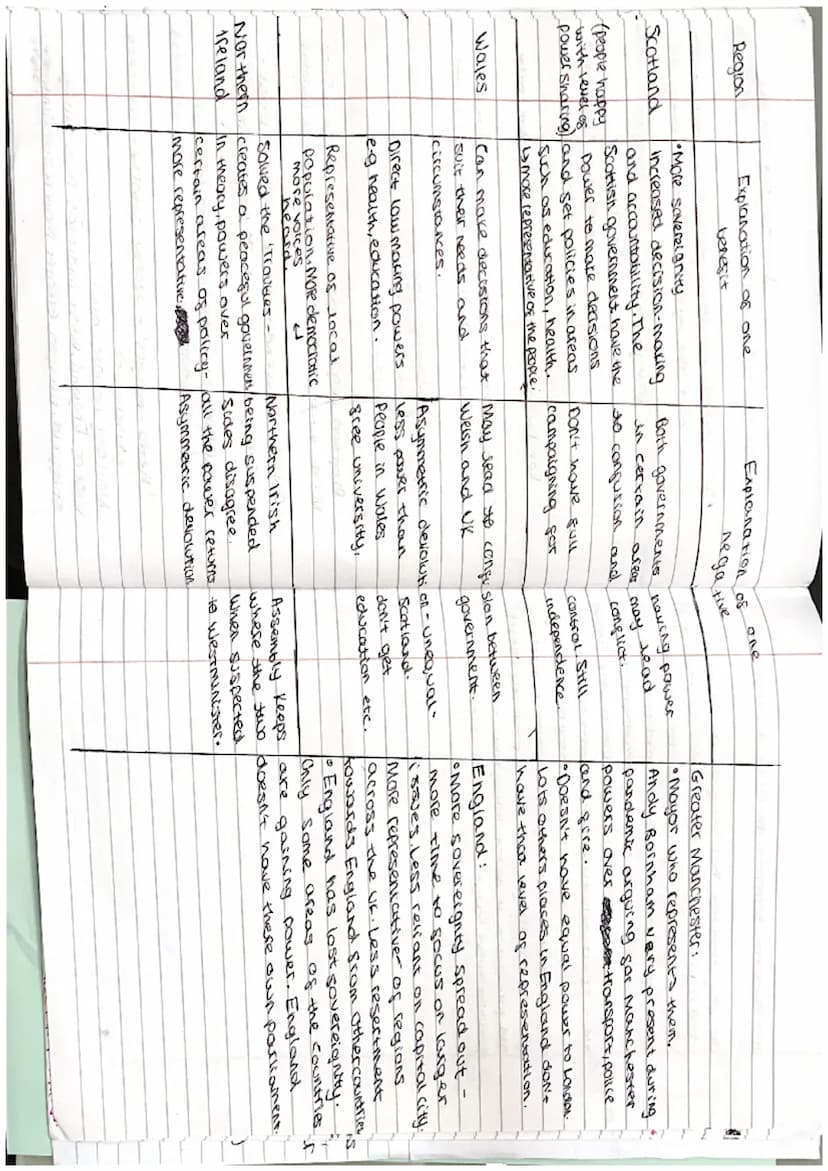 Region
Explanation of one
benefit
Explanation of one
negative
Scotland
(people happy
with level of
power sharing)
• More sovereignty
Increased decision-making
and accountability. The
Scottish government have the
power to make decisions
and set policies in areas
such as education, health.
↳ more representative of the people.
Both governments having power
in certain areas may lead
to confusion and conflict.
Don't have full control. Still
campaigning for independence.
Wales
Can make decisions that
suit their needs and
circumstances.
Direct lawmaking powers
e.g health, education.
Representative of local
population. More democratic
more voices
heard
May lead to confusion between
Welsh and UK government.
Asymmetric devolution - unequal.
less power than Scotland.
People in Wales don't get
free university, education etc.
Northern
Ireland
Solved the 'Trobles' -
creates a peaceful government
In theory, powers over
certain areas of policy -
more representative
Northern Irish Assembly keeps
being suspended where the two
sides disagree. When suspected
all the power returns to Westminister.
Asymmetric devolution
Greater Manchester:
• Mayor who represents them.
Andy Bornham very present during
pandemic arguing for Manchester
powers over transport, police
and fire.
• Doesn't have equal power to London.
Lots others places in England don't
have that level of representation.
England:
• More sovereignty spread out -
more time to focus on larger
issues. Less reliant on capital city.
More representative of regions
across the UK. Less resentment
towards England from other countries
• England has lost sovereignty.
Only some areas of the countries
are gaining power. England
doesn't have there own parliament.